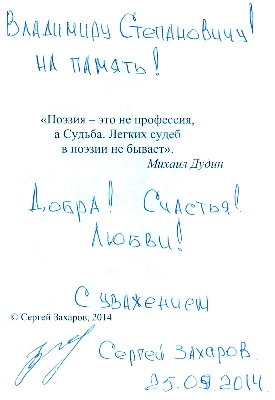 Владимиру Степановичу!
на память!
«Поэзия – это не профессия,
а Судьба. Легких судеб
в поэзии не бывает».
Михаил Дудин
Добра! Счастья!
Любви!
С уважением
© Сергей Захаров, 2014
Сергей Захаров.
25.09.2014.